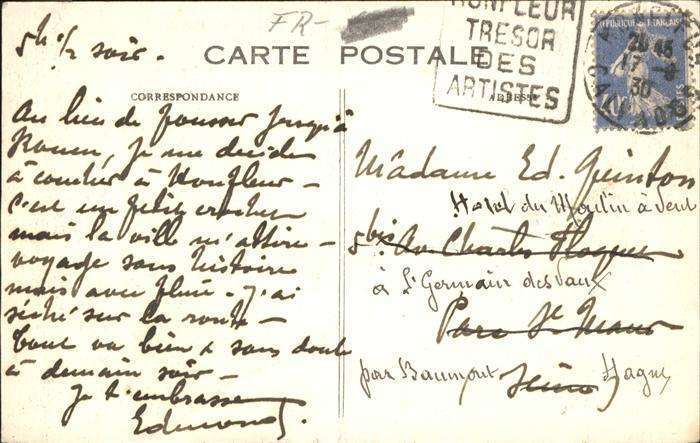 FR-
5h 1/2 soir.
CARTE POSTALE
HONFLEUR
TRESOR
DES
ARTISTES
CORRESPONDANCE
ADRESSE
Au lieu de pousser jusqu'à
Rouen, je me décide
à coucher à Honfleur –
c'est un petit crochet
mais la ville m'attire –
voyage sans histoire
mais avec pluie – J'ai
séché sur la route –
Tout va bien & sans doute
à demain soir –
Je t'embrasse
Edmond.
REPUBLIQUE FRANÇAISE
17 - 9
30
CALVADOS
Madame Ed. Quinton
Hotel du Moulin à Vent
5bis Av. Charles Floquet
à St Germain des Vaux
Parc St Maur
par Beaumont Hague
Seine